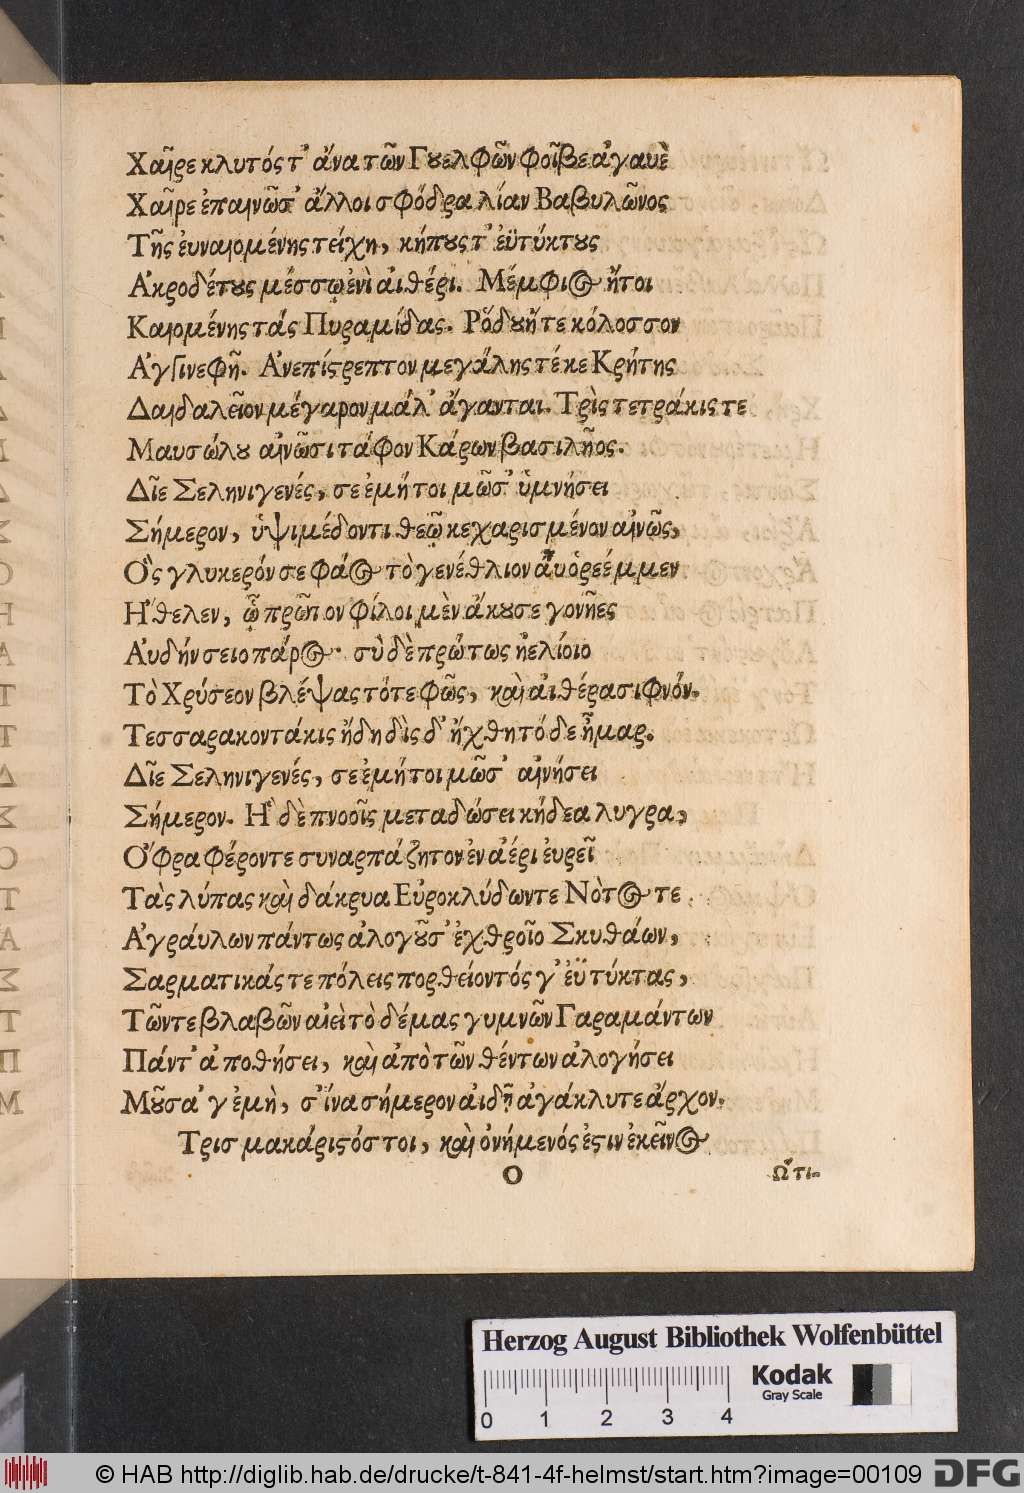 Χαῖρε κλυτός τ' ἄνα τῶν Γουελφῶν φοῖβε ἀγαυὲ
Χαῖρε ἐπαινῶσ' ἄλλοι σφόδρα λίαν Βαβυλῶνος
Τῆς ἐυναιομένης τείχη, κήπους τ' ἐϋτύκτους
Ἀκροδέτους μέσσῳ ἐνὶ αἰθέρι. Μέμφιος ἤτοι
Καιομένης τάς Πυραμίδας. Ῥόδου ἤτε κόλοσσον
Ἀγγινεφῆ. Ἀνεπίστρεπτον μεγάλης τέκε Κρήτης
Δαιδαλεῖον μέγαρον μάλ' ἄγανται. Τρὶς τετράκις τε
Μαυσώλου αἰνῶσι τάφον Κάρων βασιλῆος.
Δῖε Σεληνιγενές, σε ἐμή τοι μῶσ' ὑμνήσει
Σήμερον, ὑψιμέδοντι θεῷ κεχαρισμένον αἰνῶς,
Ὅς γλυκερόν σε φάος τὸ γενέθλιον ἂυ ὁρεέμμεν
Ἤθελεν, ᾧ πρῶτον φίλοι μὲν ἄκουσε γονῆες
Ἀυδήν σειο πάρος. σὺ δὲ πρώτως ἠελίοιο
Τὸ Χρύσεον βλέψας τότε φῶς, καὶ αἰθέρα σιφνόν.
Τεσσαρακοντάκις ἤδη δὶς δ' ἤχθη τόδε ἦμαρ.
Δῖε Σεληνιγενές, σε ἐμή τοι μῶσ' αἰνήσει
Σήμερον. Ἣ δὲ πνοοῖς μεταδώσει κήδεα λυγρα,
Ὄφρα φέροντε συναρπάζητον ἐν ἀέρι ἐυρεῖ
Τὰς λύπας καὶ δάκρυα Εὐροκλύδωντε Νὸτος τε
Ἀγράυλων πάντως ἀλογοῦσ' ἐχθροῖο Σκυθάων,
Σαρματικάς τε πόλεις πορθείοντός γ' ἐϋτύκτας,
Τῶντε βλαβῶν αἰεὶ τὸ δέμας γυμνῶν Γαραμάντων
Πάντ' ἀποθήσει, καὶ ἀπὸ τῶν θέντων ἀλογήσει
Μοῦσα' γ' ἐμὴ, σ' ἵνα σήμερον ἀιδῇ ἀγάκλυτε ἄρχον.
Τρισμακάριστός τοι, καὶ ὀνήμενός ἐστιν ἐκεῖνος
O
Ὧτι-
Herzog August Bibliothek Wolfenbüttel
Kodak
Gray Scale
0 1 2 3 4
© HAB http://diglib.hab.de/drucke/t-841-4f-helmst/start.htm?image=00109
DFG